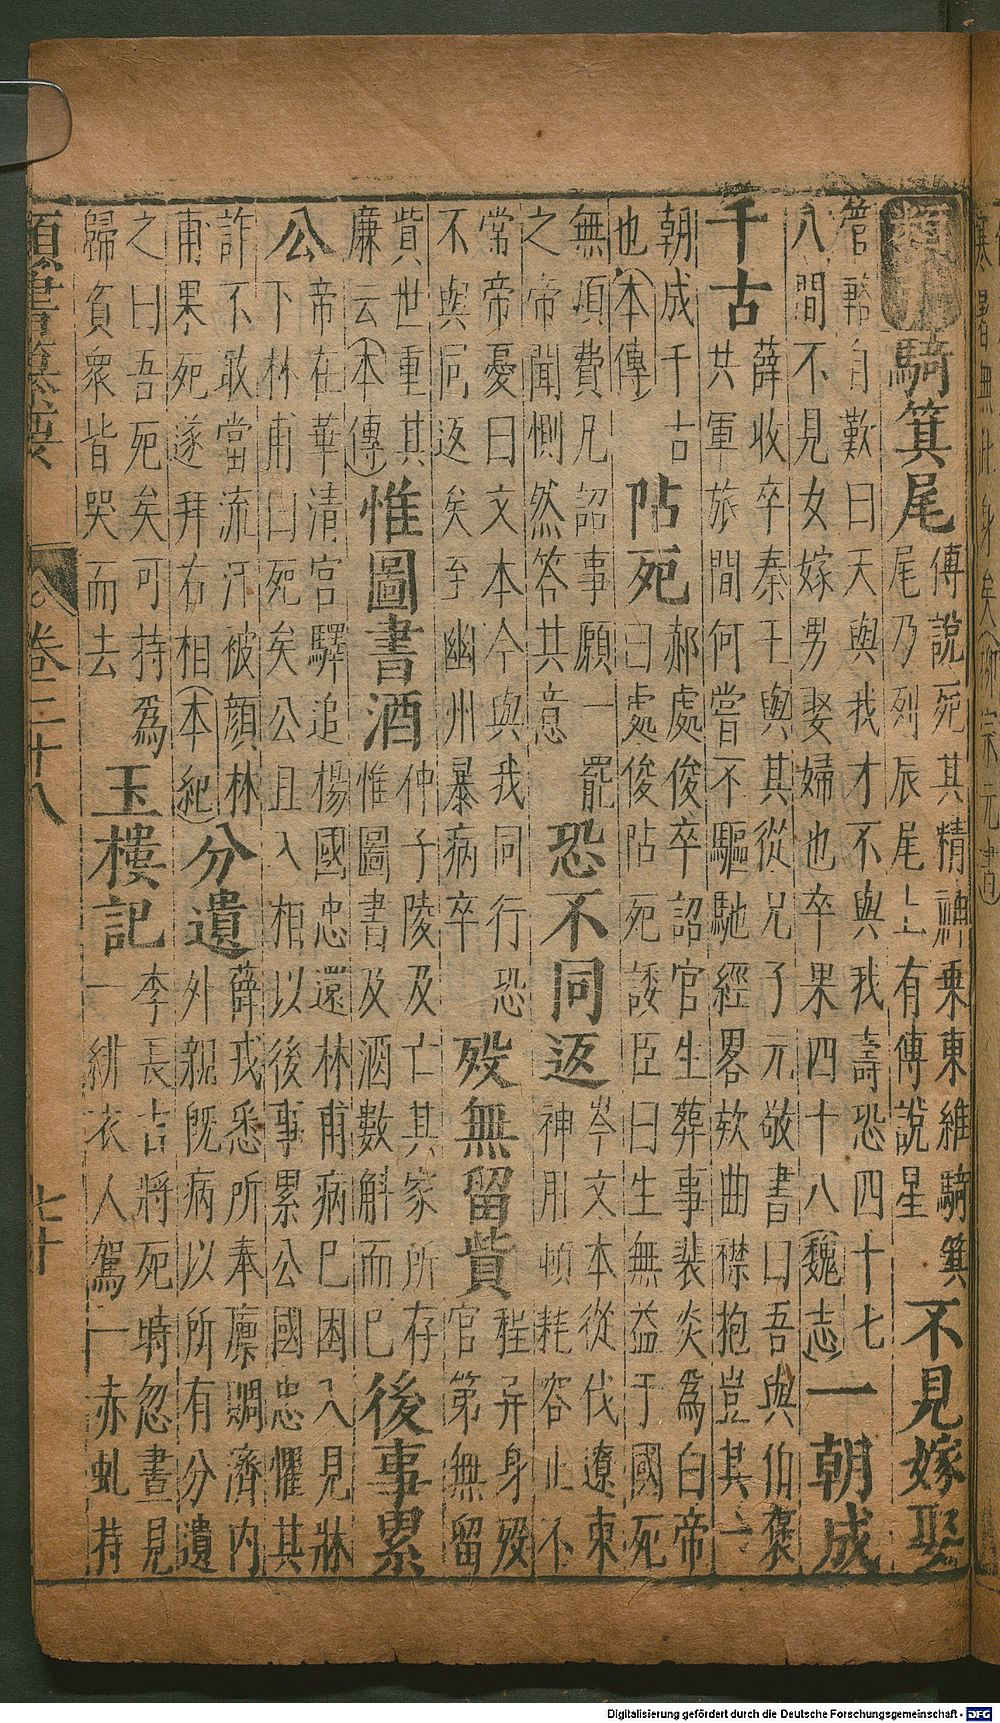 寒暑無此身矣(柳宗元書)
騎箕尾
傅說死其精神乗東維騎箕
尾乃列辰尾上有傅說星
不見嫁娶
管輅自歎曰天與我才不與我壽恐四十七
八間不見女嫁男娶婦也卒果四十八(魏志)
一朝成
千古
薛收卒秦王與其從兄子元敬書曰吾與伯褒
共軍旅間何嘗不驅馳經畧欸曲襟抱豈其一
朝成千古
也(本傳)
阽死
郝處俊卒詔官生葬事裴炎為白帝
曰處俊阽死諉臣曰生無益于國死
無項費凡詔事願一罷
之帝聞惻然答其意
恐不同返
岑文本從伐遼東
神用頓耗容止不
常帝憂曰文本今與我同行恐
不與同返矣至幽州暴病卒
歿無留貲
程异身歿
官第無留
貲世重其
廉云(本傳)
惟圖書酒
仲子陵及亡其家所存
惟圖書及酒數斛而巳
後事累
公
帝在華清宮驛追楊國忠還林甫病巳困入見牀
下林甫曰死矣公且入相以後事累公國忠懼其
詐不敢當流汗被顔林
甫果死遂拜右相(本紀)
分遺
薛戎悉所奉廪賙濟内
外親旣病以所有分遺
之曰吾死矣可持為
歸貧衆皆哭而去
玉樓記
李長吉將死時忽晝見
一緋衣人駕一赤虬持
卷三十八
七十
Digitalisierung gefördert durch die Deutsche Forschungsgemeinschaft - DFG